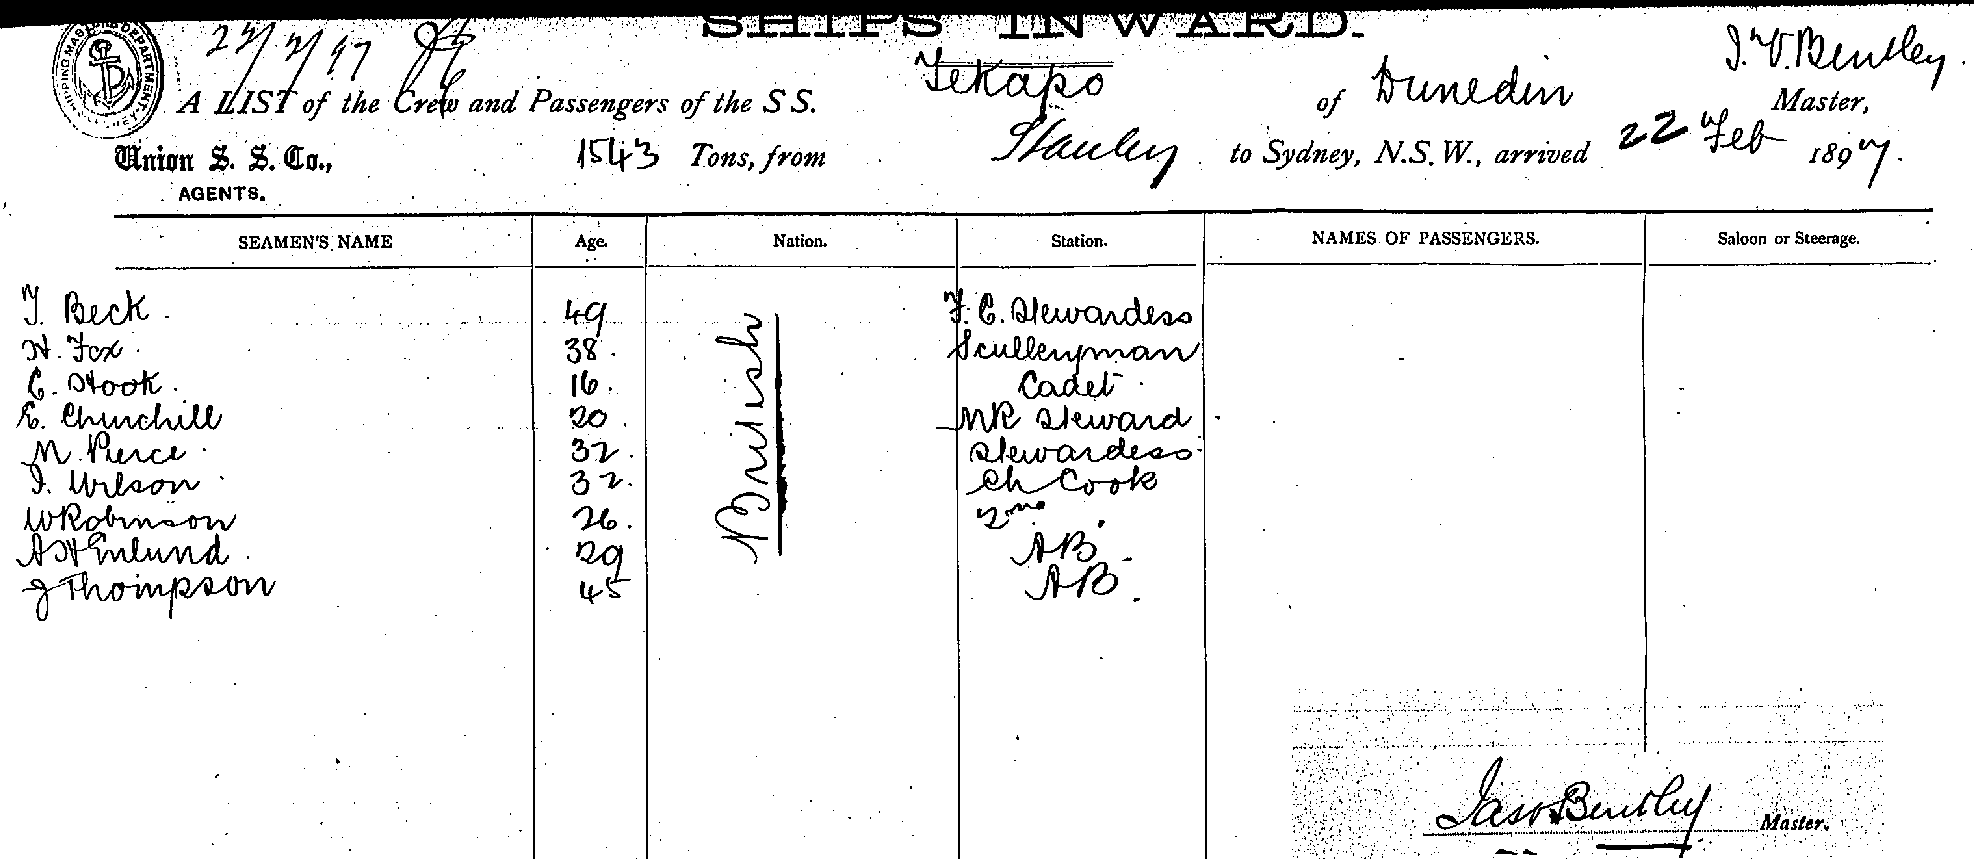 SHIPS INWARD.
22/2/97
SHIPPING MASTER'S DEPARTMENT
J. V. Bentley
A LIST of the Crew and Passengers of the S S. Tekapo of Dunedin Master,
Union S. S. Co., 1543 Tons, from Stanley to Sydney, N.S.W., arrived 22nd Feb 1897.
AGENTS.
SEAMEN'S NAME Age. Nation. Station. NAMES OF PASSENGERS. Saloon or Steerage.
T. Beck 49 British F. C. Stewardess
H. Fox 38 Sculleryman
C. Stook 16 Cadet
E. Churchill 20 MR Steward
M. Pierce 32 Stewardess
J. Wilson 32 Ch Cook
W Robinson 26 2nd
A H Enlund 29 AB
J Thompson 45 AB
Jas V Bentley Master.